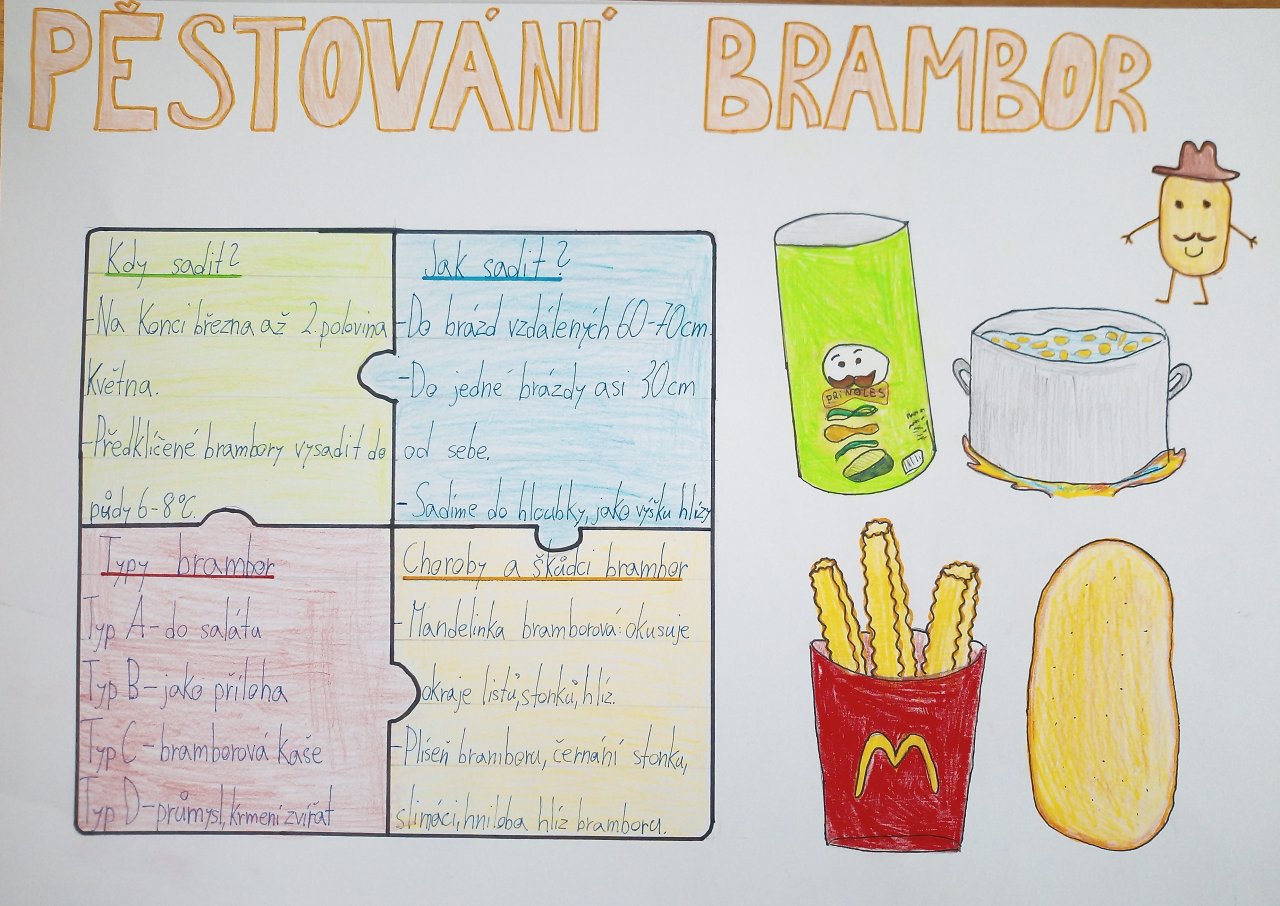 PĚSTOVÁNÍ BRAMBOR
Kdy sadit?
-Na Konci března až 2. polovina
Května.
-Předklíčené brambory vysadit do
půdy 6-8°C.
Jak sadit?
-Do brázd vzdálených 60-70cm.
-Do jedné brázdy asi 30cm
od sebe.
-Sadíme do hloubky, jako výšku hlízy
Typy brambor
Typ A-do salátu
Typ B-jako příloha
Typ C-bramborová Kaše
Typ D-průmysl, krmení zvířat
Choroby a škůdci brambor
-Mandelinka bramborová: okusuje
okraje listů, stonků, hlíz.
-Plíseň bramboru, černání stonku,
slimáci, hniloba hlíz bramboru.
PRINGLES
M